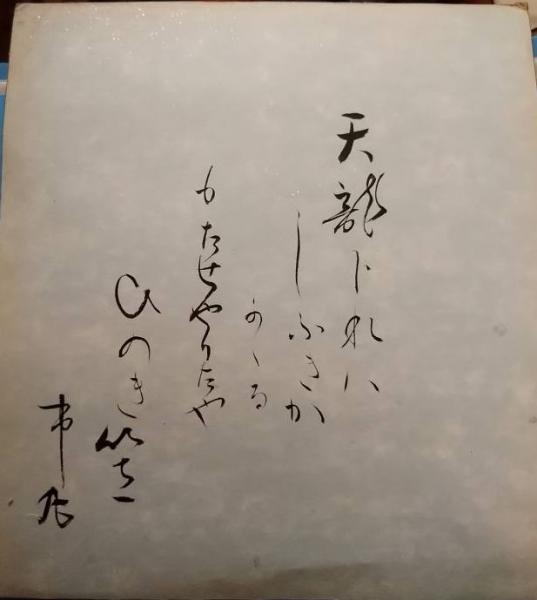 天龍下れハ
しふきか
かゝる
もたせやりたや
ひのき笠
市丸